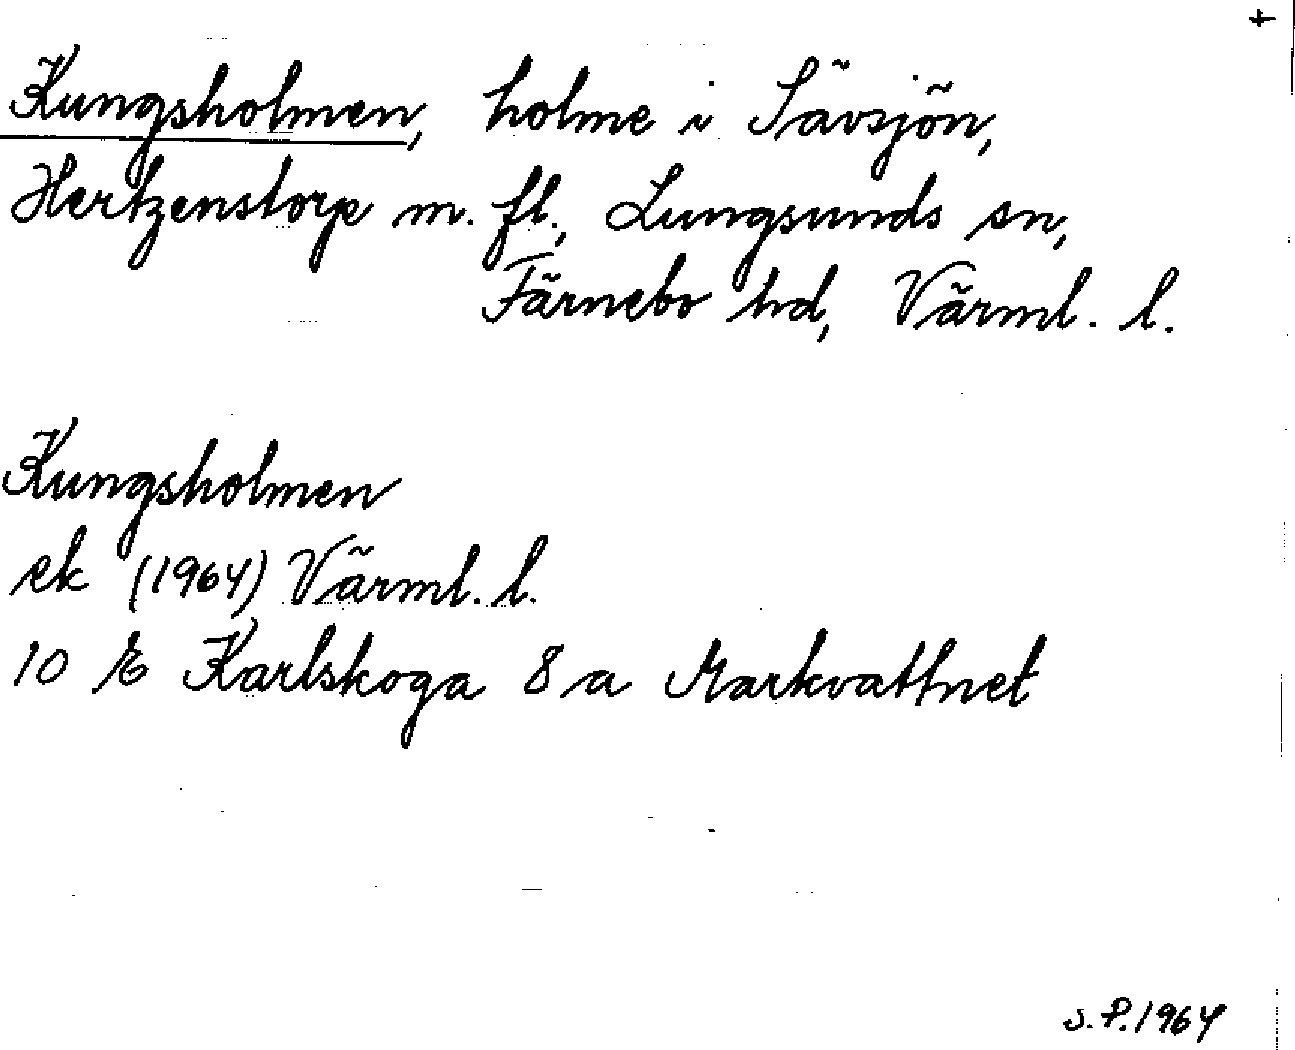 +
Kungsholmen, holme i Sävsjön,
Hertzenstorp m. fl., Lungsunds sn,
Färnebo hd, Värml. l.
Kungsholmen
ek (1964) Värml. l.
10 E Karlskoga 8 a Markvattnet
S.P. 1964